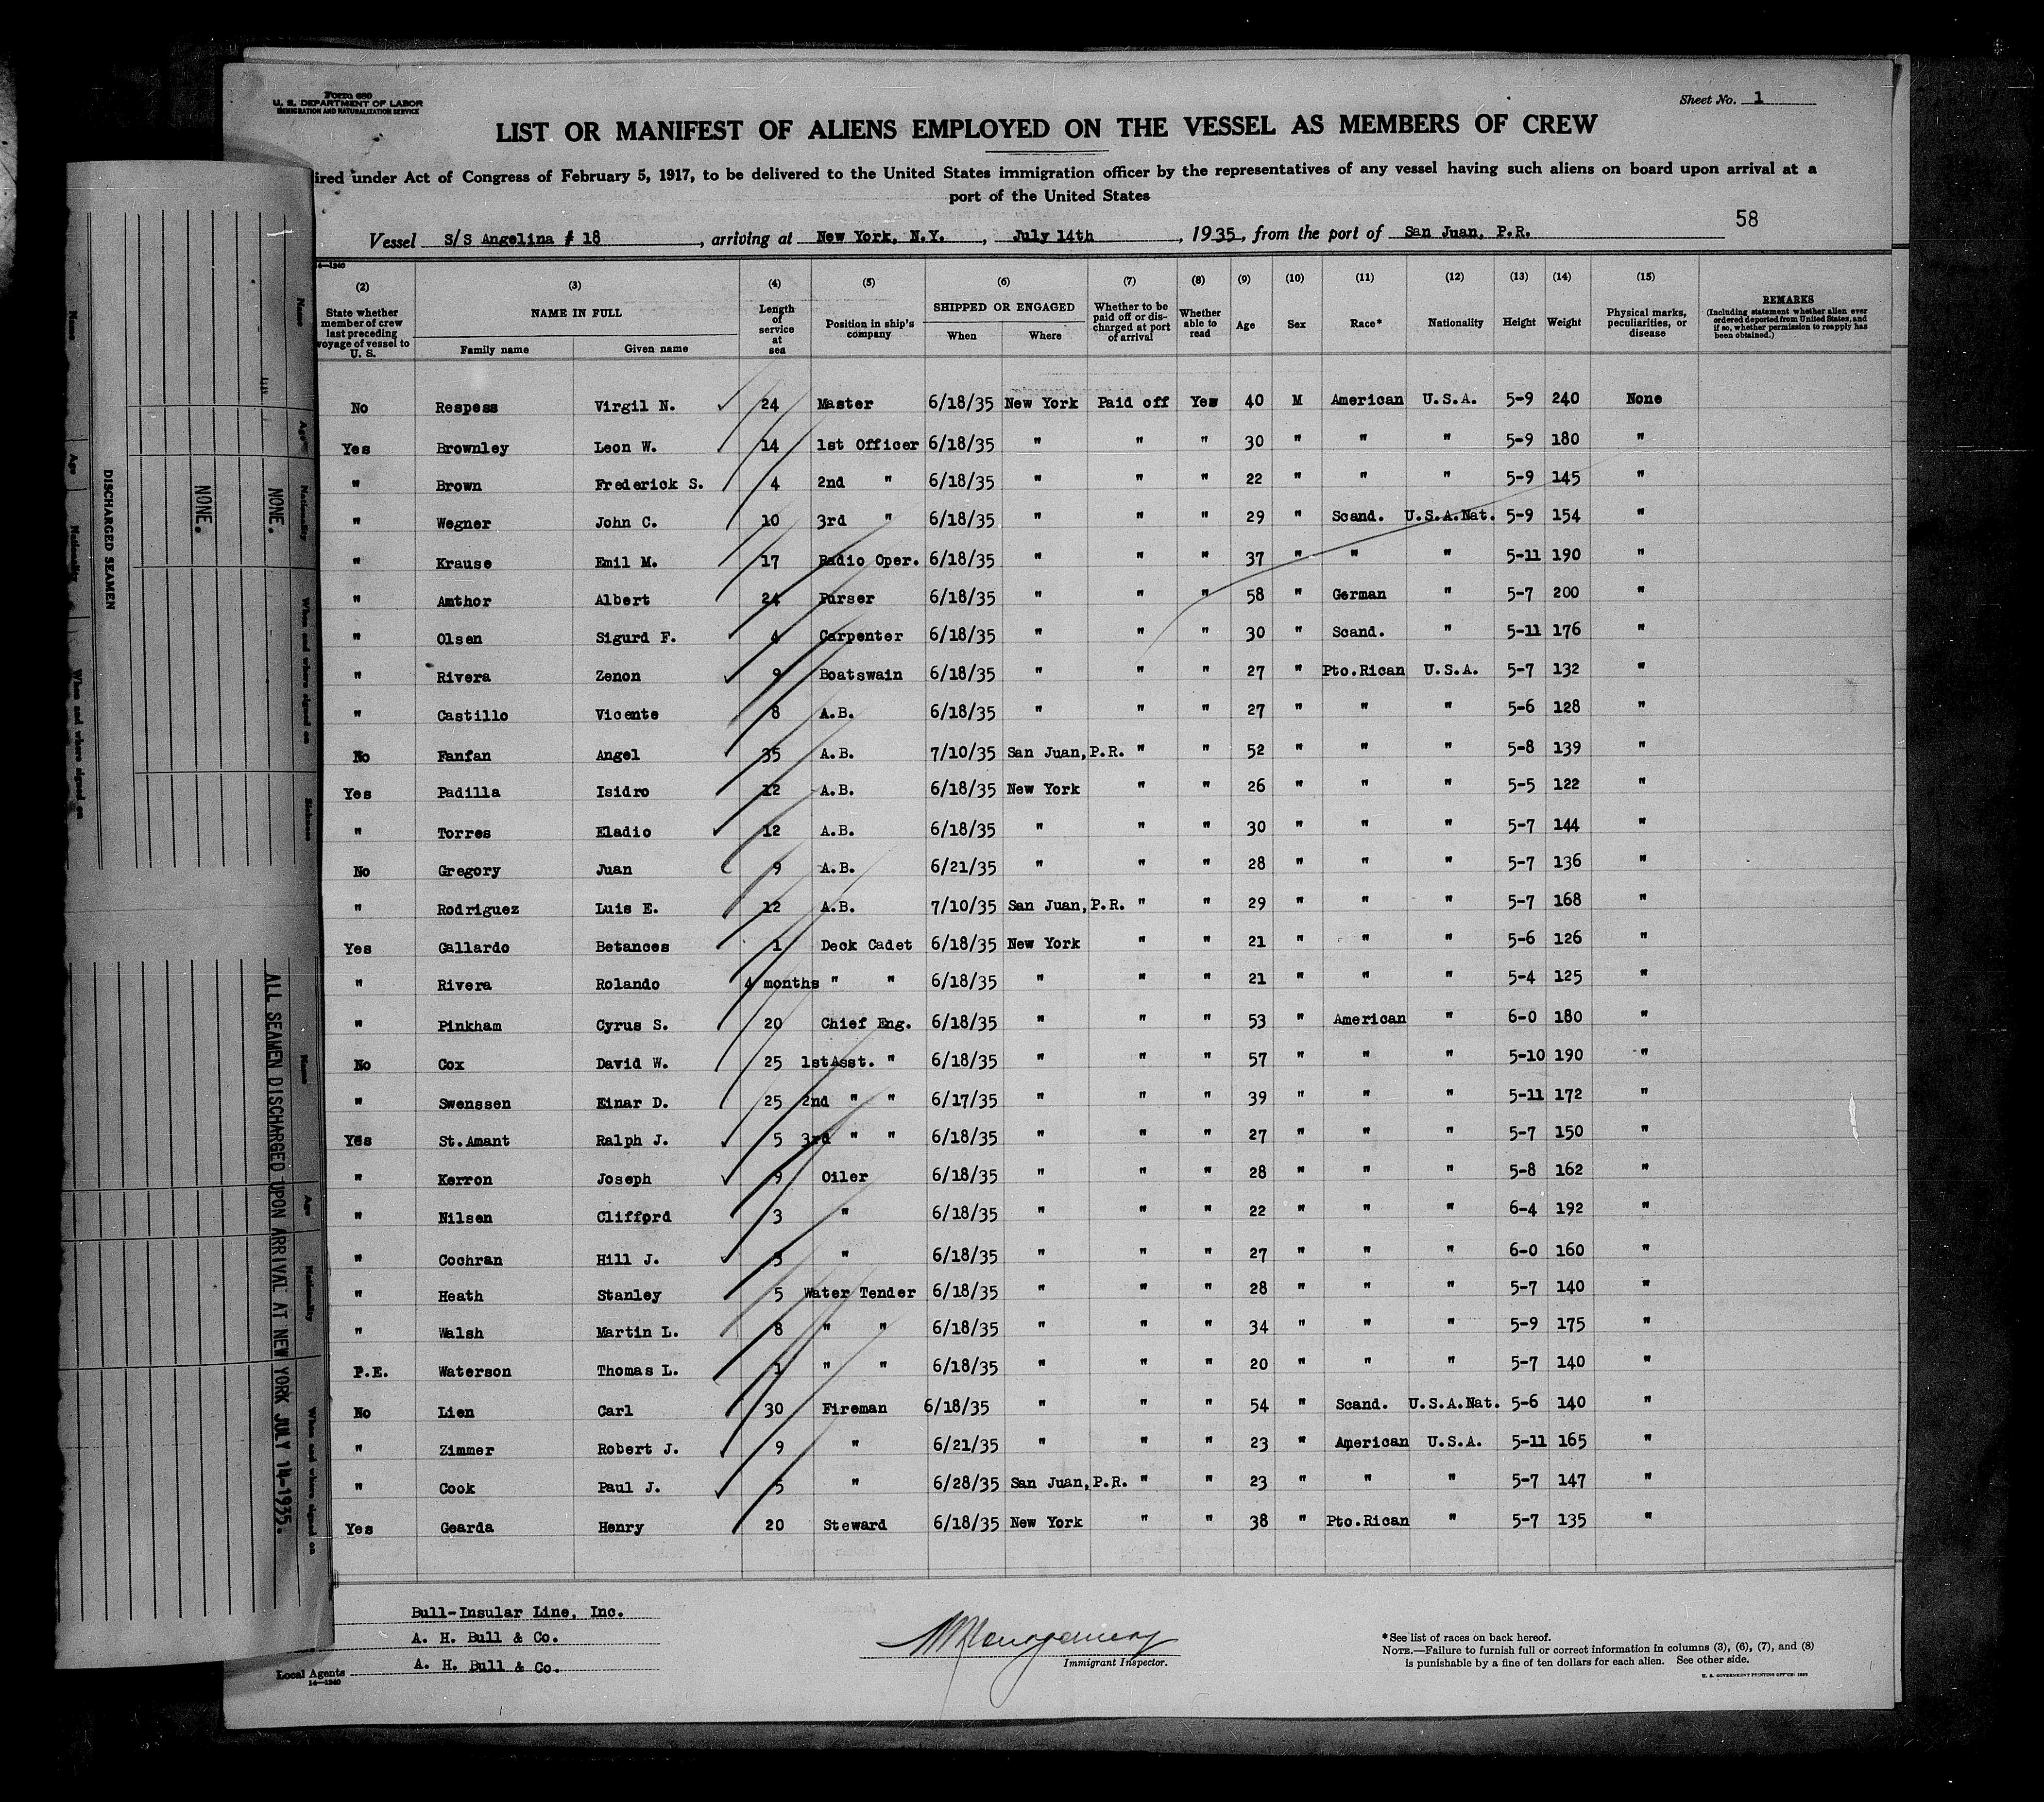 Form 689
U. S. DEPARTMENT OF LABOR
IMMIGRATION AND NATURALIZATION SERVICE
Sheet No. 1
LIST OR MANIFEST OF ALIENS EMPLOYED ON THE VESSEL AS MEMBERS OF CREW
ired under Act of Congress of February 5, 1917, to be delivered to the United States immigration officer by the representatives of any vessel having such aliens on board upon arrival at a
port of the United States
58
Vessel S/S Angelina # 18, arriving at New York, N.Y., July 14th, 1935, from the port of San Juan, P.R.
14—1240
(2) (3) (4) (5) (6) (7) (8) (9) (10) (11) (12) (13) (14) (15)
State whether member of crew last preceding voyage of vessel to U. S. NAME IN FULL Family name Given name Length of service at sea Position in ship's company SHIPPED OR ENGAGED When Where Whether to be paid off or discharged at port of arrival Whether able to read Age Sex Race* Nationality Height Weight Physical marks, peculiarities, or disease REMARKS (Including statement whether alien ever ordered deported from United States, and if so, whether permission to reapply has been obtained.)
No Respess Virgil N. 24 Master 6/18/35 New York Paid off Yes 40 M American U.S.A. 5-9 240 None
Yes Brownley Leon W. 14 1st Officer 6/18/35 " " " 30 " " " 5-9 180 "
" Brown Frederick S. 4 2nd " 6/18/35 " " " 22 " " " 5-9 145 "
" Wegner John C. 10 3rd " 6/18/35 " " " 29 " Scand. U.S.A.Nat. 5-9 154 "
" Krause Emil M. 17 Radio Oper. 6/18/35 " " " 37 " " " 5-11 190 "
" Amthor Albert 24 Purser 6/18/35 " " " 58 " German " 5-7 200 "
" Olsen Sigurd F. 4 Carpenter 6/18/35 " " " 30 " Scand. " 5-11 176 "
" Rivera Zenon 9 Boatswain 6/18/35 " " " 27 " Pto.Rican U.S.A. 5-7 132 "
" Castillo Vicente 8 A.B. 6/18/35 " " " 27 " " " 5-6 128 "
No Fanfan Angel 35 A.B. 7/10/35 San Juan, P.R. " " 52 " " " 5-8 139 "
Yes Padilla Isidro 12 A.B. 6/18/35 New York " " 26 " " " 5-5 122 "
" Torres Eladio 12 A.B. 6/18/35 " " " 30 " " " 5-7 144 "
No Gregory Juan 9 A.B. 6/21/35 " " " 28 " " " 5-7 136 "
" Rodriguez Luis E. 12 A.B. 7/10/35 San Juan, P.R. " " 29 " " " 5-7 168 "
Yes Gallardo Betances 1 Deck Cadet 6/18/35 New York " " 21 " " " 5-6 126 "
" Rivera Rolando 4 months " " 6/18/35 " " " 21 " " " 5-4 125 "
" Pinkham Cyrus S. 20 Chief Eng. 6/18/35 " " " 53 " American " 6-0 180 "
No Cox David W. 25 1stAsst. " 6/18/35 " " " 57 " " " 5-10 190 "
" Swenssen Einar D. 25 2nd " " 6/17/35 " " " 39 " " " 5-11 172 "
Yes St.Amant Ralph J. 5 3rd " " 6/18/35 " " " 27 " " " 5-7 150 "
" Kerron Joseph 9 Oiler 6/18/35 " " " 28 " " " 5-8 162 "
" Nilsen Clifford 3 " 6/18/35 " " " 22 " " " 6-4 192 "
" Cochran Hill J. 3 " 6/18/35 " " " 27 " " " 6-0 160 "
" Heath Stanley 5 Water Tender 6/18/35 " " " 28 " " " 5-7 140 "
" Walsh Martin L. 8 " " 6/18/35 " " " 34 " " " 5-9 175 "
P.E. Waterson Thomas L. 1 " " 6/18/35 " " " 20 " " " 5-7 140 "
No Lien Carl 30 Fireman 6/18/35 " " " 54 " Scand. U.S.A.Nat. 5-6 140 "
" Zimmer Robert J. 9 " 6/21/35 " " " 23 " American U.S.A. 5-11 165 "
" Cook Paul J. 5 " 6/28/35 San Juan, P.R. " " 23 " " " 5-7 147 "
Yes Gearda Henry 20 Steward 6/18/35 New York " " 38 " Pto.Rican " 5-7 135 "
Bull-Insular Line, Inc.
A. H. Bull & Co.
Local Agents A. H. Bull & Co.
14—1240
Montgomery
Immigrant Inspector.
*See list of races on back hereof.
NOTE.—Failure to furnish full or correct information in columns (3), (6), (7), and (8)
is punishable by a fine of ten dollars for each alien. See other side.
U. S. GOVERNMENT PRINTING OFFICE
Name Age Nationality When and where signed on
NONE.
NONE.
DISCHARGED SEAMEN
Name Age Nationality When and where signed on
Name Age Nationality When and where signed on
ALL SEAMEN DISCHARGED UPON ARRIVAL AT NEW YORK JULY 14-1935.